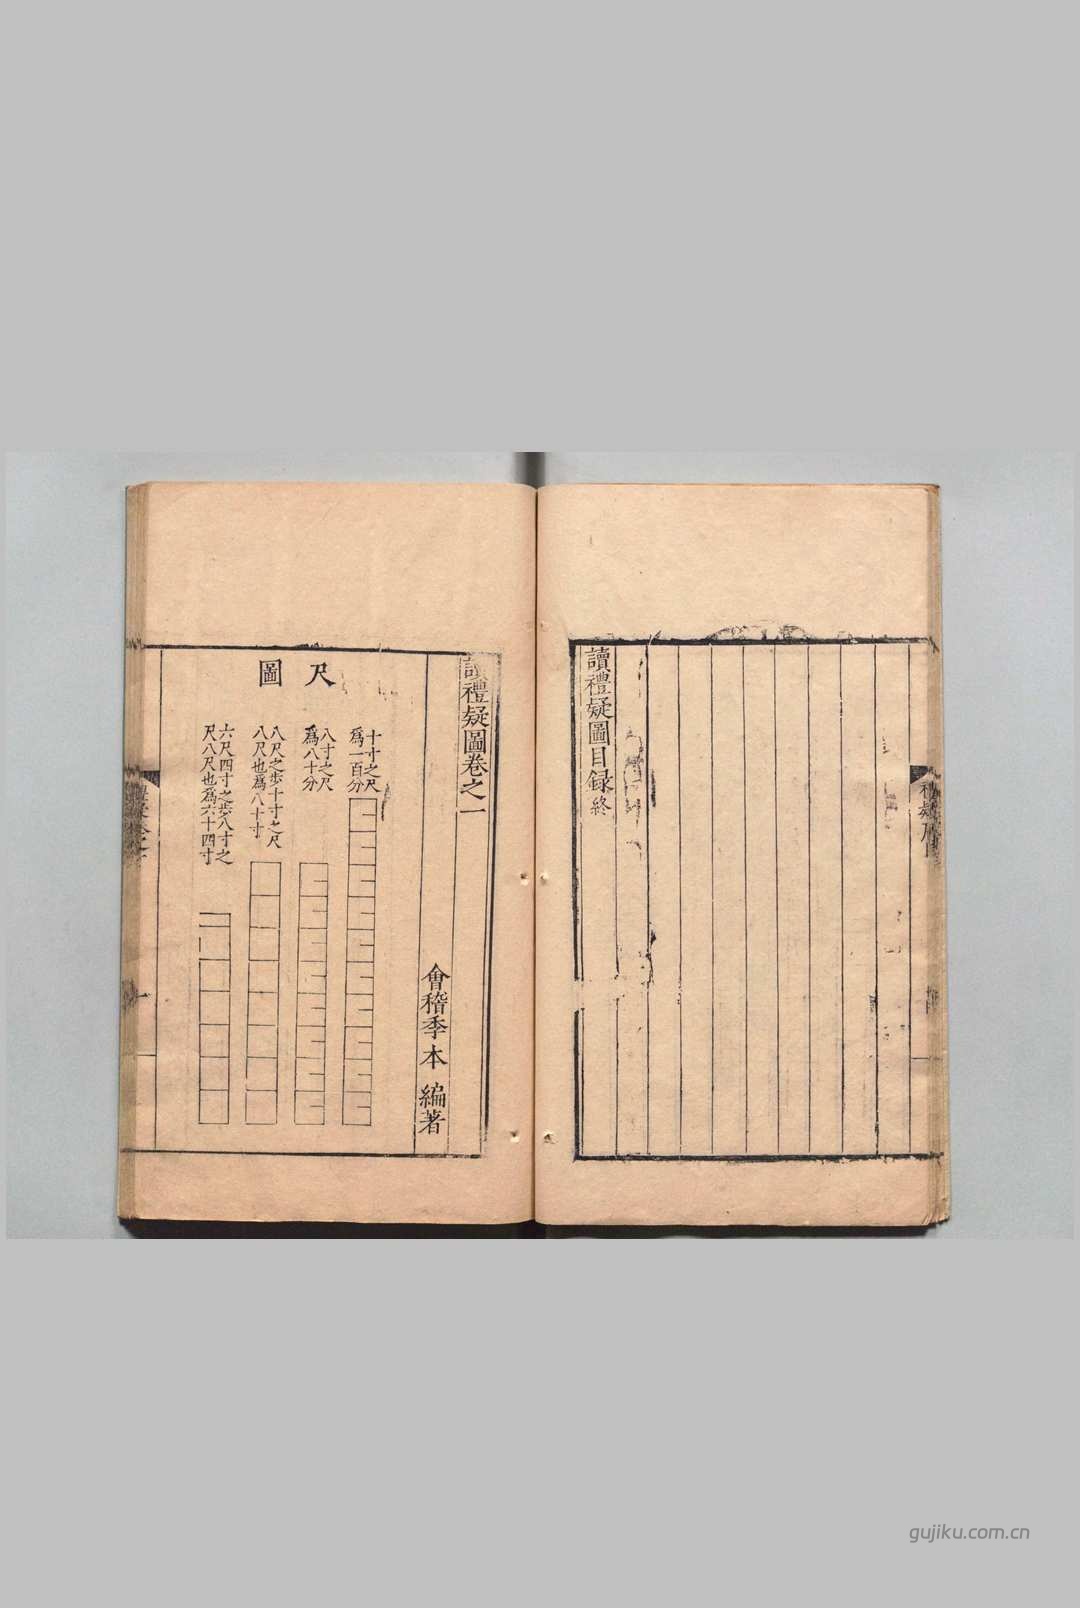 讀禮疑圖目録終
讀禮疑圖卷之一
會稽季本編著
尺圖
十寸之尺
爲一百分
八寸之尺
爲八十分
八尺之步十寸之尺
八尺也爲八十寸
六尺四寸之步八寸之
尺八尺也爲六十四寸
gujiku.com.cn